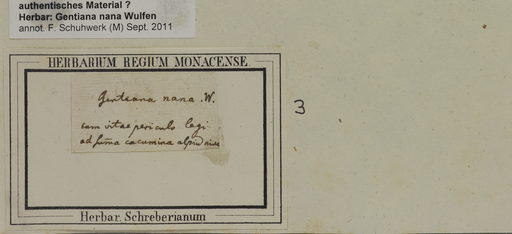 authentisches Material ?
Herbar: Gentiana nana Wulfen
annot. F. Schuhwerk (M) Sept. 2011
HERBARIUM REGIUM MONACENSE.
Gentiana nana. W.
cum vitae periculo legi
ad summa cacumina alpium
3
Herbar. Schreberianum